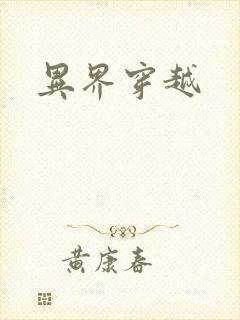 異界穿越
黃康春